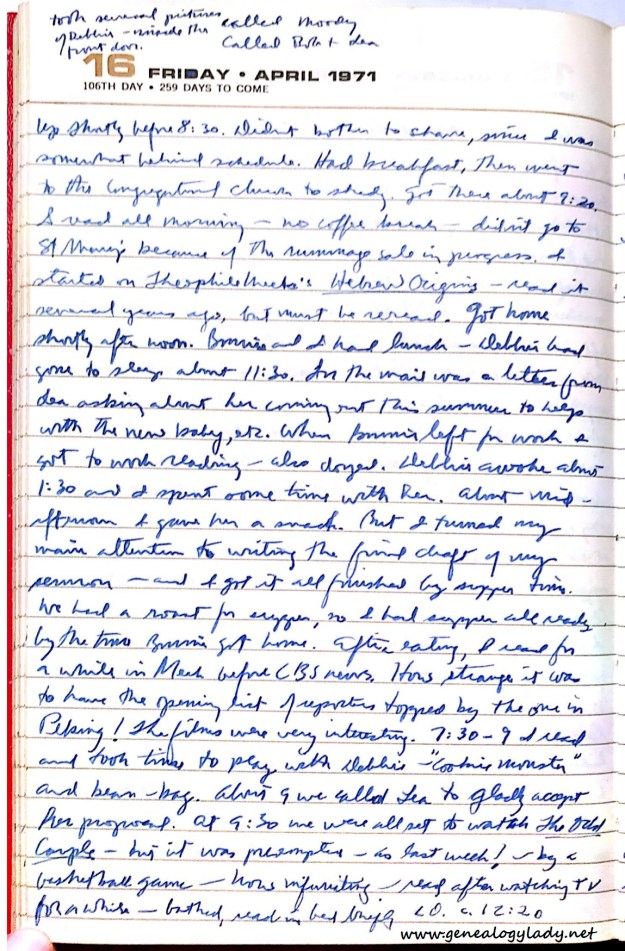 took several pictures
of Debbie – inside the
front door.
called Moody
Called Bob + Lea
16 FRIDAY • APRIL 1971
106TH DAY • 259 DAYS TO COME
Up shortly before 8:30. Didn't bother to shave, since I was
somewhat behind schedule. Had breakfast, then went
to the Congregational Church to study. Got there about 9:20.
I read all morning – no coffee break – didn't go to
St Mary's because of the rummage sale in progress. I
started on Theophile Meek's Hebrew Origins – read it
several years ago, but must be reread. Got home
shortly after noon. Bonnie and I had lunch – Debbie had
gone to sleep about 11:30. In the mail was a letter from
Lea asking about her coming out this summer to help
with the new baby, etc. When Bonnie left for work I
got to work reading – also dozed. Debbie awoke about
1:30 and I spent some time with her. About mid-
afternoon I gave her a snack. But I turned my
main attention to writing the final draft of my
sermon – and I got it all finished by supper time.
We had a roast for supper, so I had supper all ready
by the time Bonnie got home. After eating, I read for
a while in Meek before CBS news. How strange it was
to have the opening list of reporters topped by the one in
Peking! The films were very interesting. 7:30 – 9 I read
and took time to play with Debbie – "Cookie Monster"
and bean-bag. About 9 we called Lea to gladly accept
her proposal. At 9:30 we were all set to watch The Odd
Couple – but it was preempted – as last week! – by a
basketball game – how infuriating – read after watching TV
for a while – bathed, read in bed briefly LO. c. 12:20
www.genealogylady.net